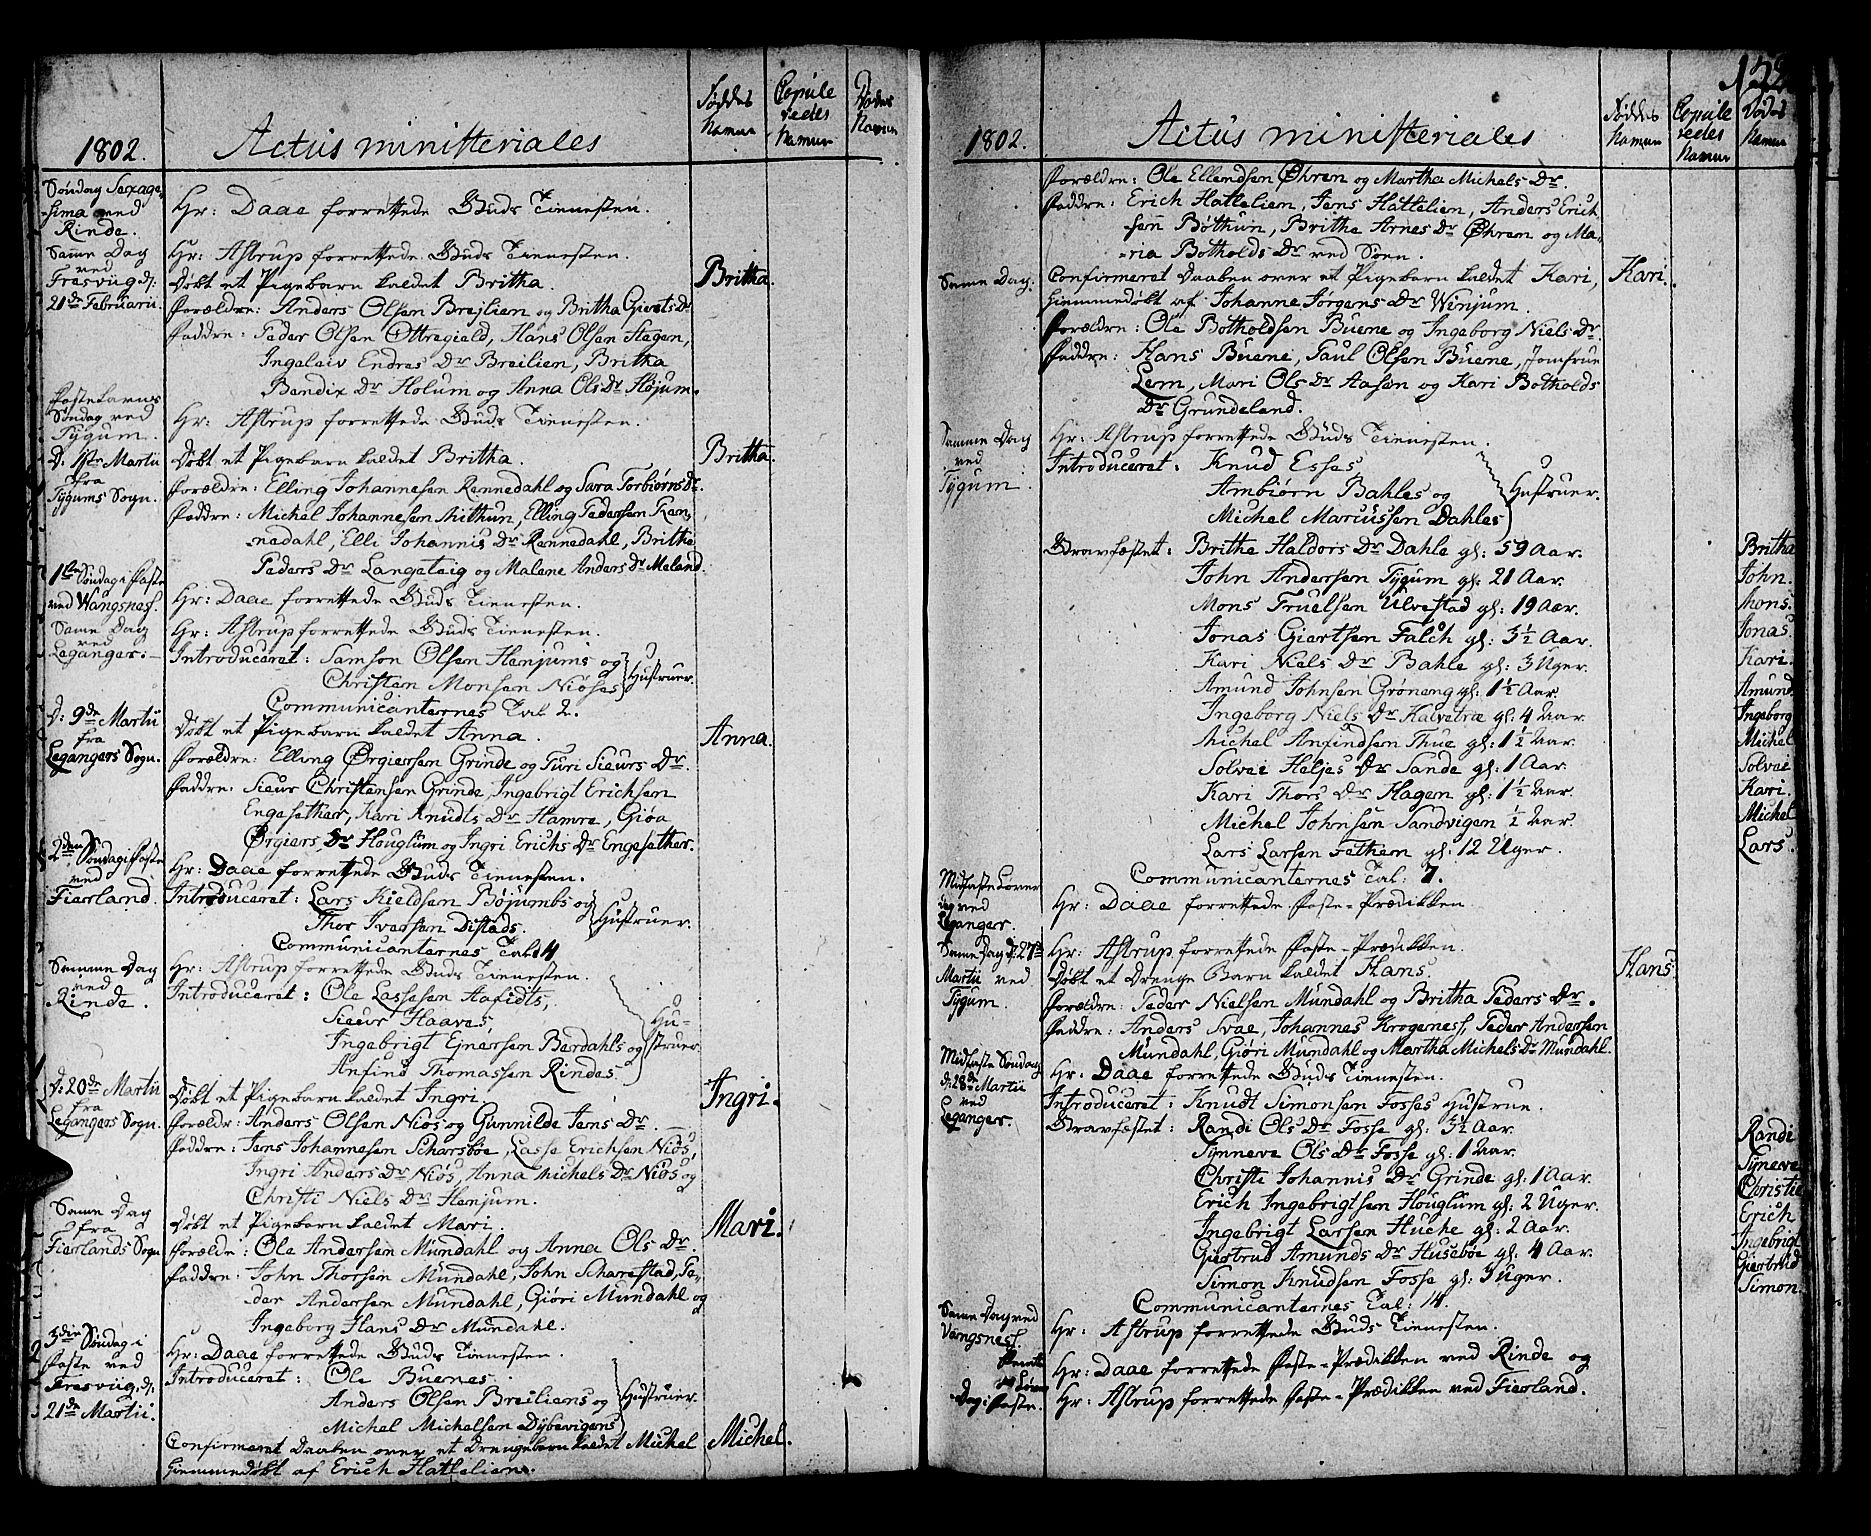 1802.
Actus ministeriales
Føddes Namun
Copule redes Namun
Dødes Namun
Søndag Sexage-
sima ved
Rinde.
Hr: Daae forrettede Guds Tienesten.
Same Dag
ved
Fresviig d:
21de Februarii.
Hr: Astrup forrettede Guds Tienesten.
Døbt et Pigebarn kaldet Britha.
Britha.
Forældre: Anders Olsen Brejlien og Britha Gierts Dr
Faddre: Peder Olsen Ottregield, Hans Olsen Hagen,
Ingeleiv Endres Dr Breilien, Britha
Bendix Dr Holum og Anna Ols Dr Højum.
Fastelavns
Søndag ved
Tygum.
Hr: Astrup forrettede Guds Tienesten.
D: 1ste Martii
fra
Tygums Sogn.
Døbt et Pigebarn kaldet Britha.
Britha.
Forældre: Elling Johannesen Rennedahl og Sara Torbiørns Dr.
Faddre: Michel Johannesen Nithun, Elling Pedersen Ren-
nedahl, Elli Johannis Dr Rennedahl, Britha
Peders Dr Langeteig og Malene Anders Dr Meland.
1ste Søndag i Faste
ved Wangsnes.
Hr: Daae forrettede Guds Tienesten.
Same Dag
ved
Leganger.
Hr: Astrup forrettede Guds Tienesten.
Introduceret: Samson Olsen Henjums og
Christen Monsen Niøses
Hustruer.
Communicanternes Tal 2.
D: 9de Martii
fra
Legangers Sogn.
Døbt et Pigebarn kaldet Anna.
Anna.
Forældre: Elling Ørgiersen Grinde og Turi Siurs Dr.
Faddre: Sieur Christensen Grinde, Ingebrigt Erichsen
Engesether, Kari Knudts Dr Hamre, Giøa
Ørgiers Dr Houglum og Ingri Erichs Dr Engesether.
2den Søndag i Faste
ved
Fierland.
Hr: Daae forrettede Guds Tienesten.
Introduceret: Lars Kieldsen Bøjumbs og
Thor Iversen Distads.
Hustruer.
Communicanternes Tal: 4
Samme Dag
ved
Rinde.
Hr: Astrup forrettede Guds Tienesten.
Introduceret: Ole Lassesen Hafidts,
Sieur Haaves,
Ingebrigt Ejnersen Berdahls og
Anfind Thomassen Rindes.
Hu-
struer
D: 20de Martii
fra
Legangers Sogn.
Døbt et Pigebarn kaldet Ingri.
Ingri.
Forældr: Anders Olsen Niøs og Gunnilde Jens Dr.
Faddre: Jens Johannesen Scharsbøe, Lasse Erichsen Niøs,
Ingri Anders Dr Niøs, Anna Michels Dr Niøs og
Christi Niels Dr Henjum.
Same Dag
fra
Fierlands Sogn
Døbt et Pigebarn kaldet Mari.
Mari.
Forælde: Ole Andersen Mundahl og Anna Ols Dr.
Faddre: John Thorsen Mundahl, John Scharestad, Pe-
der Andersen Mundahl, Giøri Mundahl og
Ingeborg Hans Dr Mundahl.
3die Søndag i
Faste ved
Fresviig, d:
21de Martii.
Hr: Daae forrettede Guds Tienesten.
Introduceret: Ole Buenes
Anders Olsen Breiliens og
Michel Michelsen Dybevigens
Hustruer.
Confirmeret Daaben over et Drengebarn kaldet Michel
Michel.
hiemmedøbt af Erich Hattelien.
152
1802.
Actus ministeriales
Føddes Namun
Copule redes Namun
Dødes Namun
Forældre: Ole Ellendsen Øhren og Martha Michels Dr.
Faddre: Erich Hattelien, Jens Hattelien, Anders Erich
sen Bøthun, Britha Arnes Dr Øhren og Ma-
ria Botholds Dr ved Søen.
Same Dag.
Confirmeret Daaben over et Pigebarn kaldet Kari,
Kari.
hiemmedøbt af Johanne Jørgens Dr Winjum.
Forældre: Ole Botholdsen Buene og Ingeborg Niels Dr
Faddre: Hans Buene, Paul Olsen Buene, Jomfrue
Lem, Mari Ols Dr Aasen og Kari Botholds
Dr Grundeland.
Samme Dag
ved
Tygum.
Hr: Astrup forrettede Guds Tienesten.
Introduceret: Knud Esses
Ambiørn Bahles og
Michel Marcussen Dahles
Hustruer.
Gravfæstet: Britha Haldors Dr Dahle gl: 59 Aar.
Britha
John Andersen Tygum gl: 21 Aar.
John.
Mons Truelsen Ulvestad gl: 19 Aar.
Mons.
Jonas Giertsen Falch gl: 3½ Aar.
Jonas.
Kari Niels Dr Bahle gl: 3 Uger.
Kari.
Amund Johnsen Grøneng gl: 1½ Aar.
Amund
Ingeborg Niels Dr Kalvetræ gl: 4 Aar.
Ingeborg
Michel Anfindsen Thue gl: 1½ Aar.
Michel
Solvei Heljes Dr Sande gl: 1 Aar.
Solvei
Kari Thors Dr Hagen gl: 1½ Aar.
Kari.
Michel Johnsen Sandvigen ½ Aar.
Michel
Lars Larsen Fethem gl: 12 Uger.
Lars.
Communicanternes Tal: 7.
Midfaste Løver
dag ved
Leganger.
Hr: Daae forrettede Faste-Prædikken.
Same Dag d: 27de
Martii ved
Tygum.
Hr: Astrup forrettede Faste-Prædikken.
Døbt et Drenge Barn kaldet Hans.
Hans.
Forældre: Peder Nielsen Mundahl og Britha Peders Dr.
Faddre: Anders Svae, Johannes Krogenes, Peder Andersen
Mundahl, Giøri Mundahl og Martha Michels Dr Mundahl.
Midfaste Søndag
d: 28de Martii
ved
Leganger.
Hr: Daae forrettede Guds Tienesten.
Introduceret: Knudt Simonsen Fosses Hustrue.
Gravfæstet: Randi Ols Dr Fosse gl: 3½ Aar.
Randi
Synneve Ols Dr Fosse gl: 1 Aar.
Synneve
Christi Johannis Dr Grinde gl: 1 Aar.
Christie
Erich Ingebrigtsen Houglum gl: 2 Uger.
Erich
Ingebrigt Larsen Huche gl: 2 Aar.
Ingebrigt
Giertrud Amunds Dr Husebøe gl: 4 Aar.
Giertrud
Simon Knudsen Fosse gl: 3 Uger.
Simon.
Communicanternes Tal: 14.
Same Dag ved
Vangsnes.
Hr: Astrup forrettede Guds Tienesten.
Dag i Faste.
Hr: Daae forrettede Faste-Prædikken ved Rinde og
Hr: Astrup forrettede Faste-Prædikken ved Fierland.